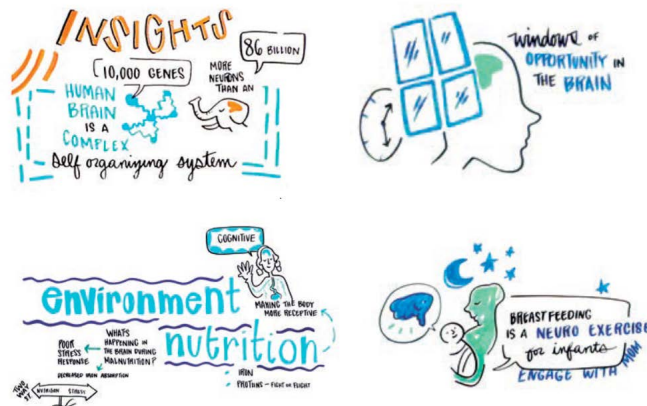 INSIGHTS
86 BILLION
10,000 GENES
MORE
NEURONS
THAN AN
HUMAN
BRAIN
IS A
COMPLEX
self organizing system
windows OF
OPPORTUNITY IN
THE BRAIN
COGNITIVE
environment
MAKING THE BODY
MORE RECEPTIVE
nutrition
WHATS
HAPPENING IN
THE BRAIN DURING
MALNUTRITION?
POOR
STRESS
RESPONSE
DECREASED IRON ABSORPTION
IRON
PROTEINS - FIGHT OR FLIGHT
TWO
WAY
ST
NUTRITION STRESS
BREASTFEEDING
IS A NEURO EXERCISE
for infants
ENGAGE WITH MOM